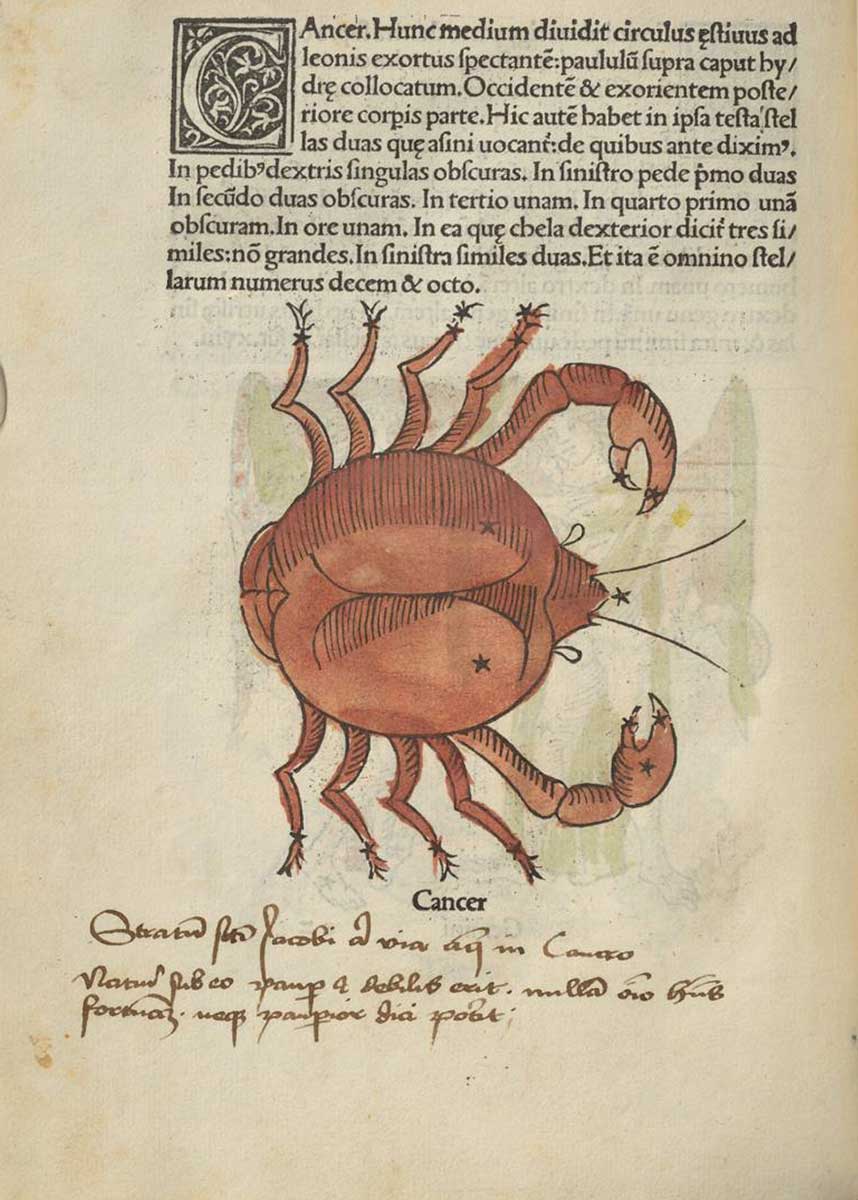 CAncer. Hunc medium diuidit circulus ęſtiuus ad
leonis exortus ſpectantē: paululū ſupra caput hy/
drę collocatum. Occidentē & exorientem poſte/
riore corpis parte. Hic autē habet in ipſa teſta ſtel
las duas quę aſini uocant᷑: de quibus ante diximꝰ.
In pedibꝰ dextris ſingulas obſcuras. In ſiniſtro pede p̄mo duas
In ſecūdo duas obſcuras. In tertio unam. In quarto primo unā
obſcuram. In ore unam. In ea quę chela dexterior dicit᷑ tres ſi/
miles: nō grandes. In ſiniſtra ſimiles duas. Et ita ē omnino ſtel/
larum numerus decem & octo.
Cancer
Stratū Jacobi via in Cancro
Natus ſub eo paup & debilis erit. nullā
fortunā. neqꝫ pauperior dici